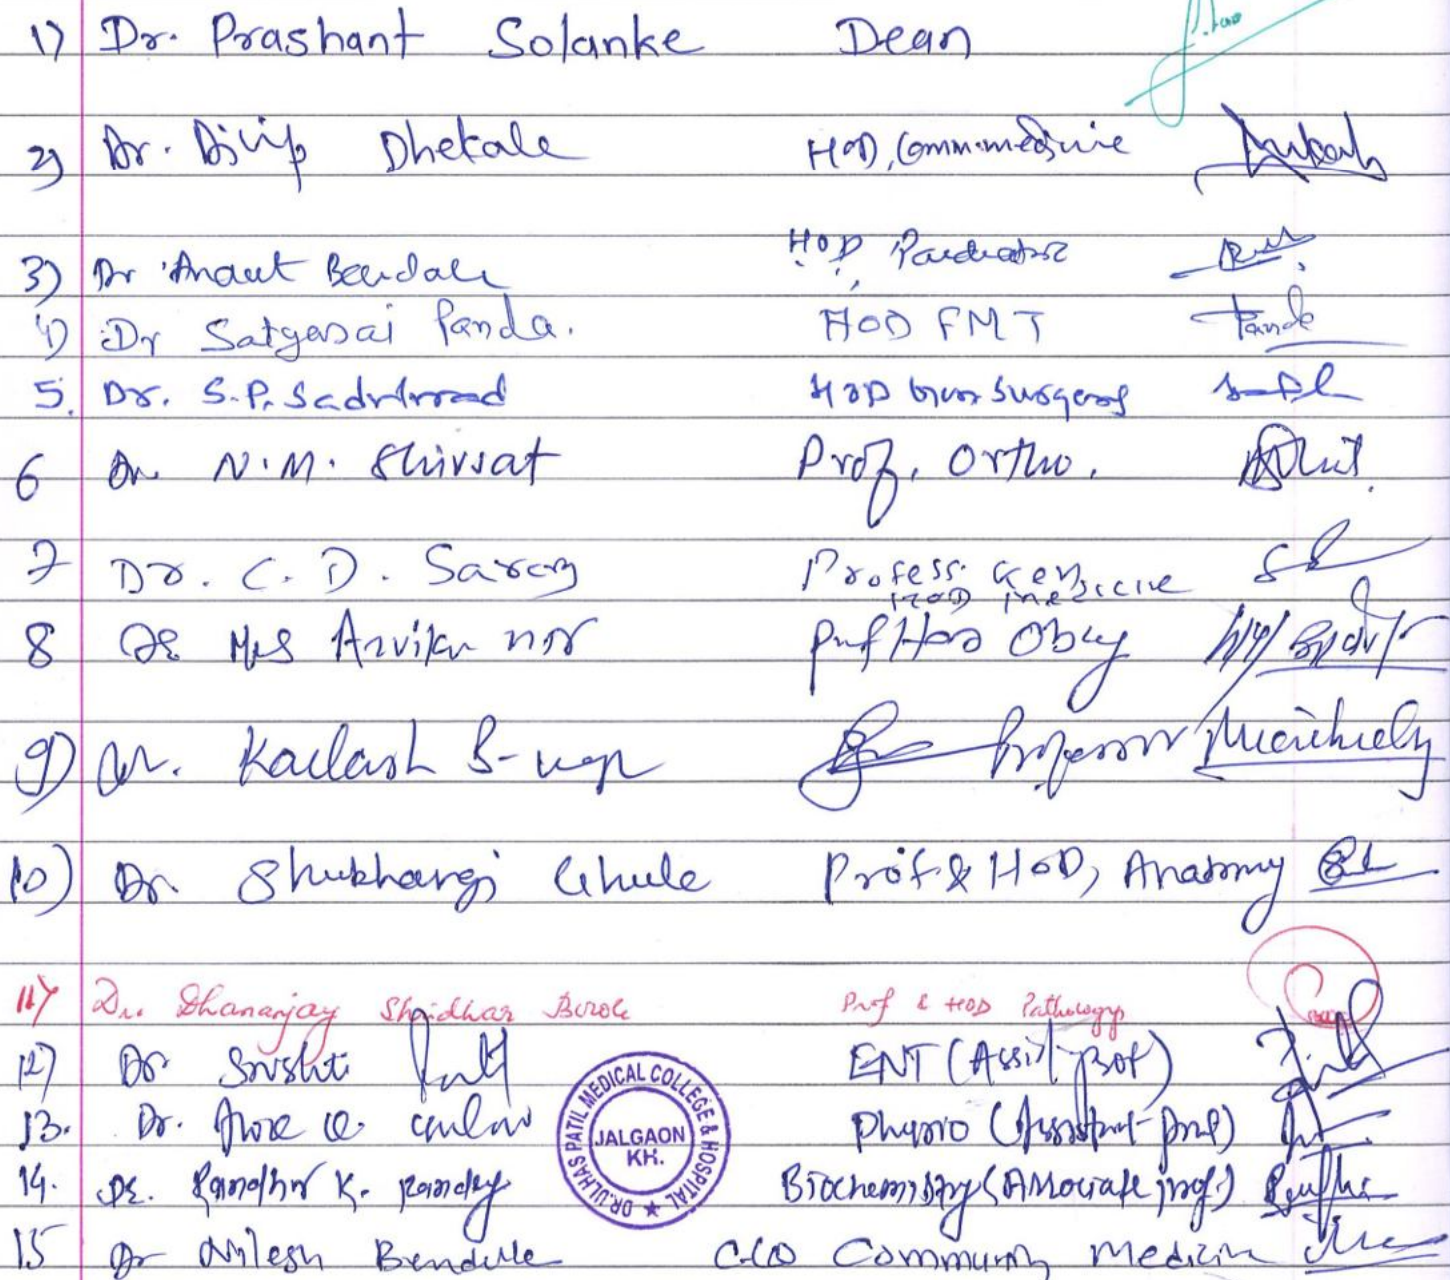 1) Dr. Prashant Solanke Dean
2) Dr. Dilip Dhekale HOD, Comm.medicine
3) Dr Anant Bendale HOD Paediatric
4) Dr Satyasai Panda. HOD FMT Panda
5. Dr. S.P. HOD Surgery
6 Dr N.M. Shirsat Prof. Ortho.
7 Dr. C. D. Sarang Profess. Gen
HOD medicine
8 Dr Mrs Prof HOD Obgy
9) Dr. Kailash Professor
10) Dr. Shubhangi Ghule Prof. & HOD, Anatomy
11) Dr. Dhananjay Shridhar Borole Prof & HOD Pathology
12) Dr Srishti Patil ENT (Assist prof)
13. Dr. Physio (Assistant prof)
14. Dr. K. Pandey Biochemistry (Associate prof.)
15 Dr Nilesh Bendale Community Medicin
DR.ULHAS PATIL MEDICAL COLLEGE & HOSPITAL
JALGAON
KH.